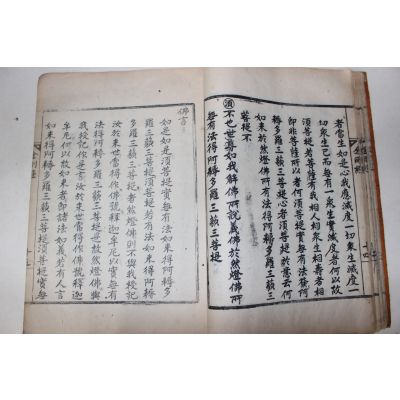 者當生如是心我應滅度一切衆生滅度一
切衆生已而每有一衆生實滅度者何以故
須菩提若菩薩有我相人相衆生相壽者相
即非菩薩所以者何須菩提實每有法發阿
耨多羅三藐三菩提心者須菩提於意云何
如來於然燈佛所有法得阿耨多羅三藐三
菩提不
須
不也世尊如我解佛所說義佛於然燈佛所
每有法得阿耨多羅三藐三菩提
佛言
如是如是須菩提實每有法如來得阿耨多
羅三藐三菩提須菩提若有法如來得阿耨
多羅三藐三菩提者然燈佛則不與我授記
汝於來世當得作佛號釋迦牟尼以實每有
法得阿耨多羅三藐三菩提是故然燈佛與
我授記作是言汝於來世當得作佛號釋迦
牟尼何以故如來者即諸法如義若有人言
如來得阿耨多羅三藐三菩提須菩提實每